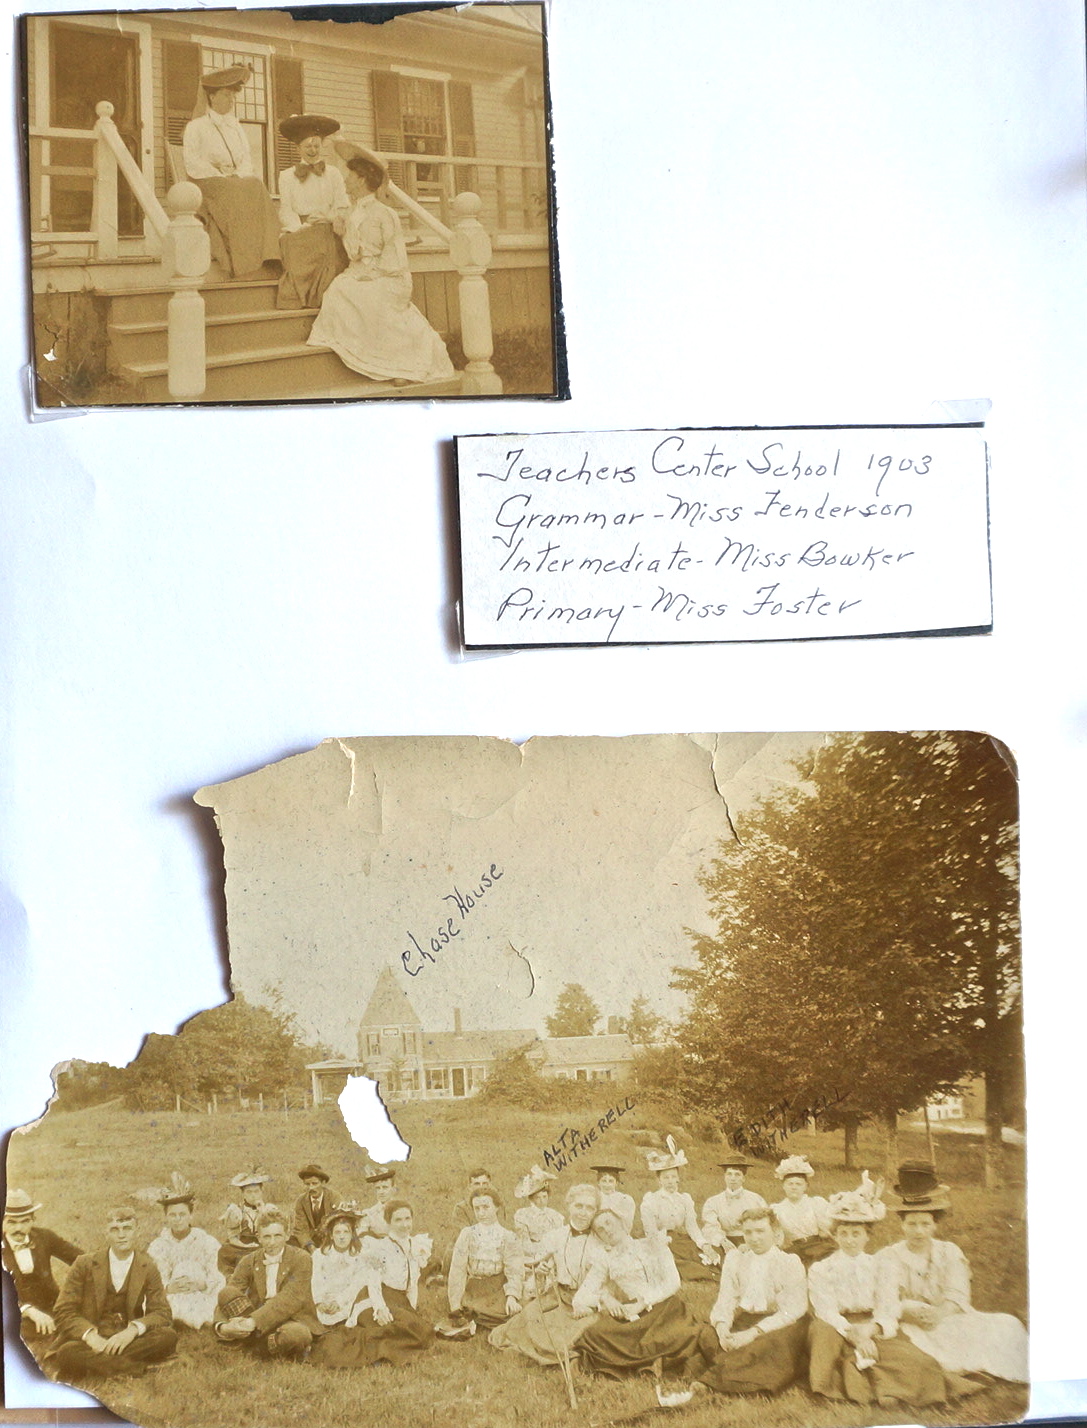 Teachers Center School 1903
Grammar - Miss Fenderson
Intermediate - Miss Bowker
Primary - Miss Foster
Chase House
ALTA
WITHERELL
EDITH
WITHERELL